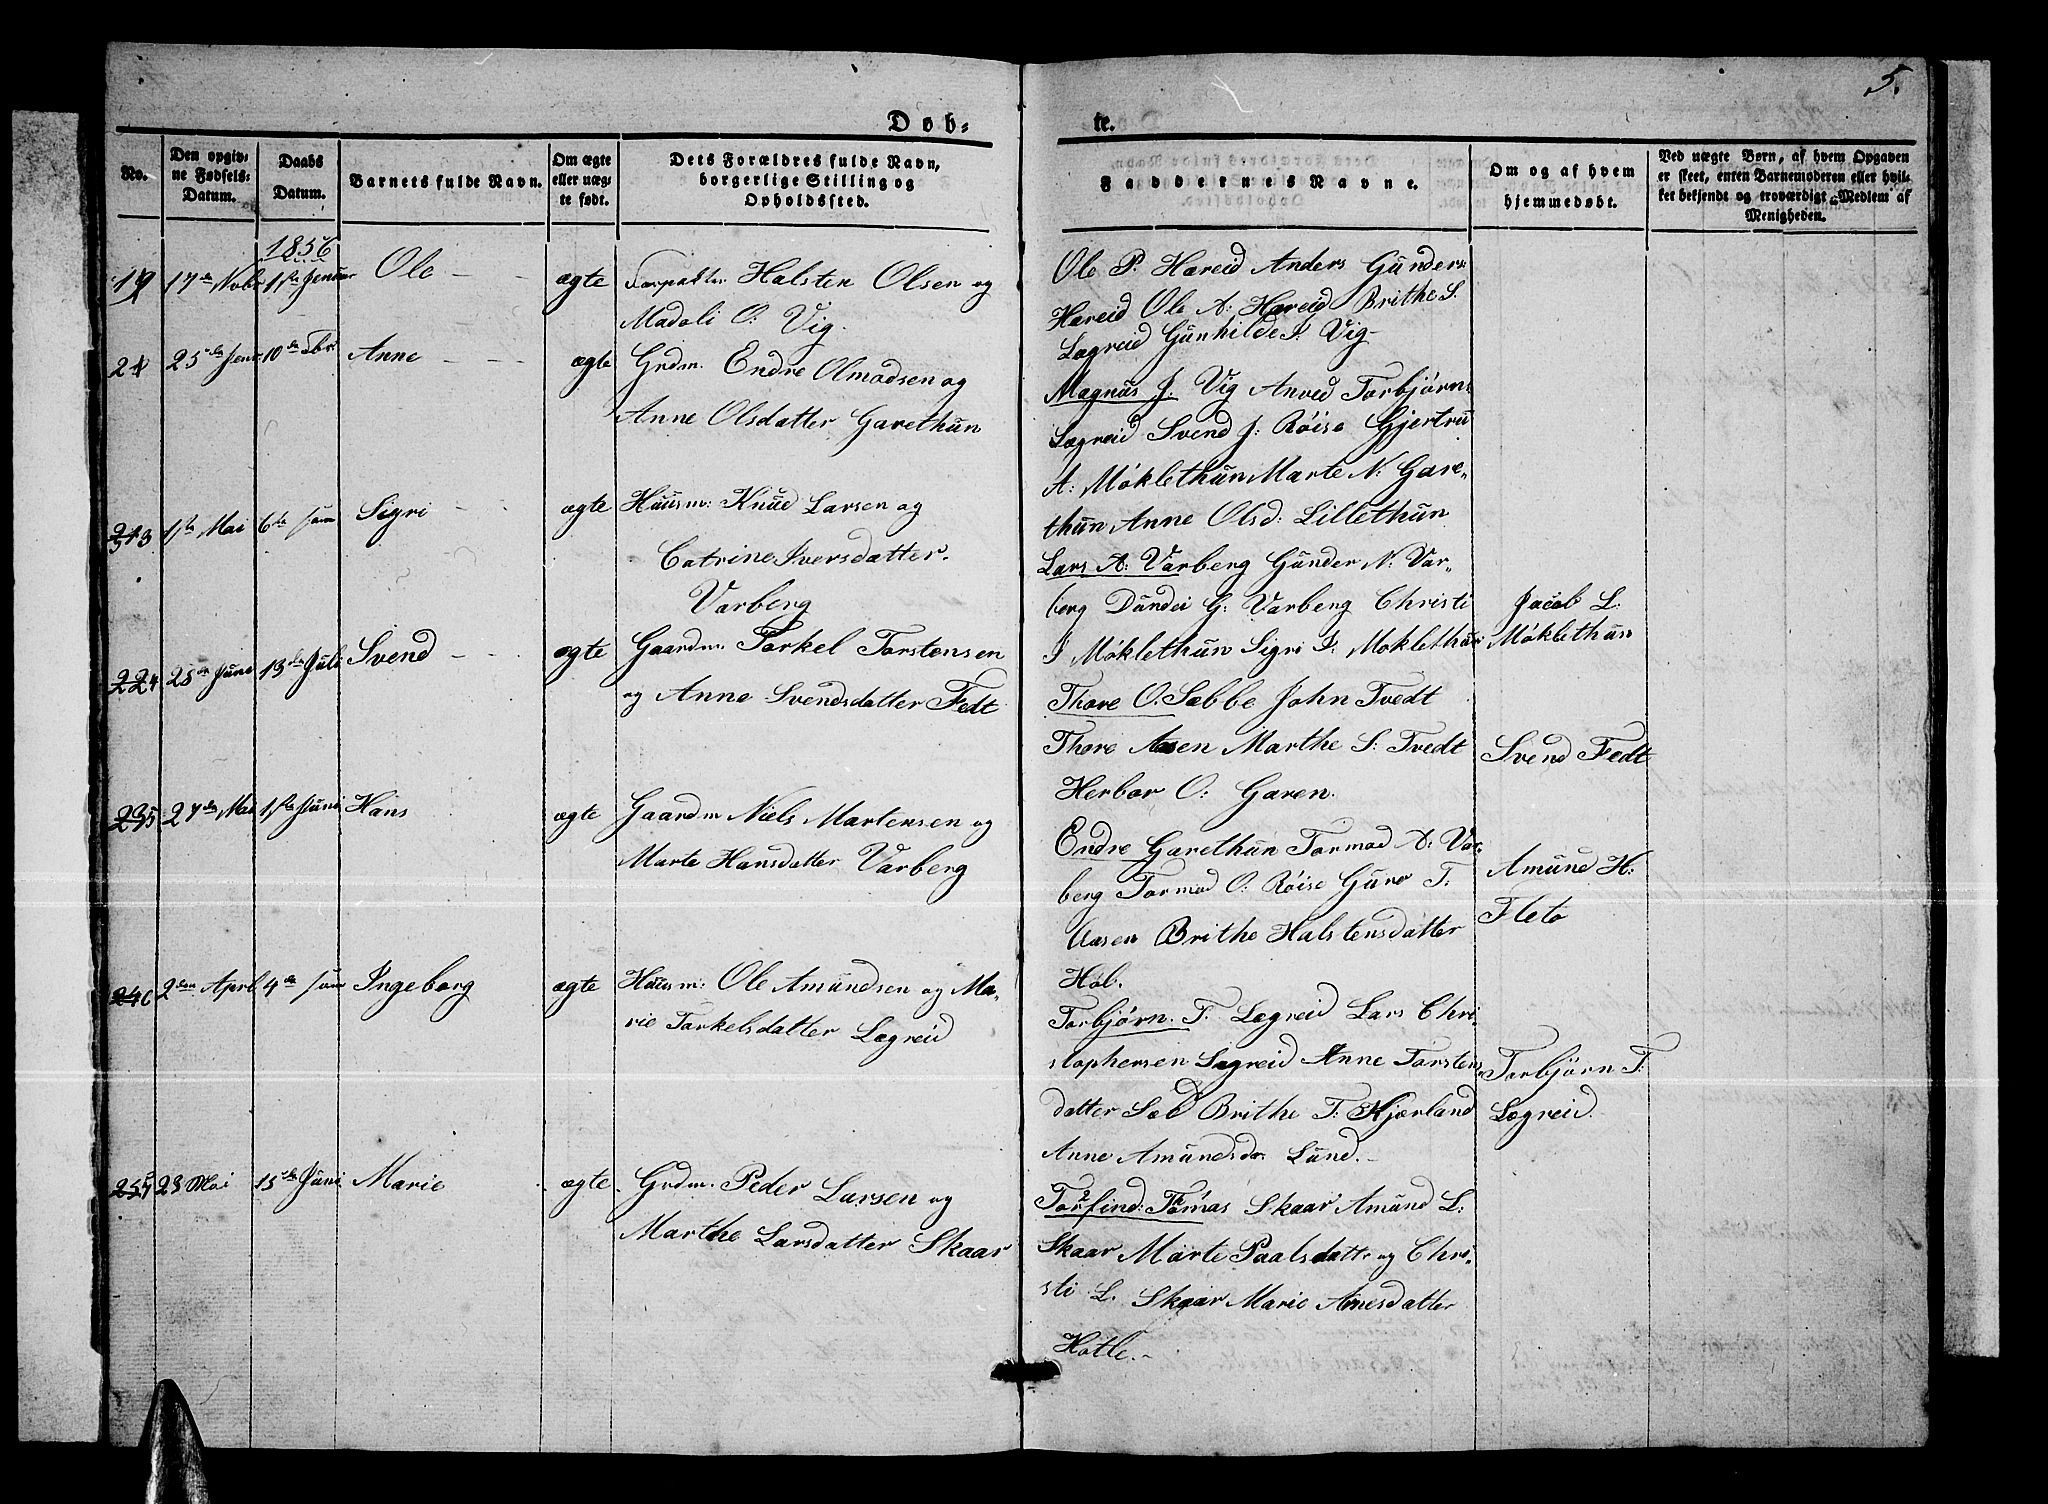 5.
Døb-
te.
No.
Den opgiv-
ne Fødsels-
Datum.
Daabs
Datum.
Barnets fulde Navn.
Om ægte
eller uæg-
te født.
Dets Forældres fulde Navn,
borgerlige Stilling og
Opholdssted.
Faddernes Navne.
Om og af hvem
hjemmedøbt.
Ved uægte Børn, af hvem Opgaven
er skeet, enten Barnemoderen eller hvil-
ket bekjendt og troværdigt Medlem af
Menigheden.
1856
19 17de Nvbr 1ste Januar Ole - - ægte Halsten Olsen og
Madali O: Vig.
Ole P. Hæreid Anders Gunders:
Hæreid Ole A: Hæreid Brithe S.
Lægreid Gunhilde I. Vig -
25de Janr. 10de Fbr: Anne - - - ægte Grdm. Endre Olmodsen og
Anne Olsdatter Garethun
Magnus J. Vig Anved Torbjørns
Lægreid Svend J: Røise Gjertru
A: Møklethun Marte N: Gare-
thun Anne Olsd: Lillethun
1ste Mai 6te Sigri - - ægte Huusm: Knud Larsen og
Catrine Iversdatter.
Varberg
Lars A: Varberg Gunder N: Var-
berg Dundei G: Varberg Christi
I Møklethun Sigri I: Moklethun
Jacob L:
Møklethun
224 28de June 13de Juli Svend - - ægte Gaardm. Torkel Torstensen
og Anne Svendsdatter Fedt
Thore O. Sæbbe John Tvedt
Thore Aasen Marthe S: Tvedt
Herbor O: Garen.
Svend Fedt
235 27de Mai 1ste Juni Hans ægte Gaardm Niels Martensen og
Marte Hansdatter Varberg
Endre Garethun Tormod A: Var-
berg Tormod O: Røise Guro T.
Aasen Brithe Halstensdatter
Hol.
Amund H:
Fleto
246 2den Aprl 4de Ingeborg ægte Huusm: Ole Amundsen og Ma-
rie Torkelsdatter Lægreid
Torbjørn. T. Lægreid Lars Chri-
stophersen Lægreid Anne Torstens
datter Sæb Brithe T: Kjærland
Anne Amundsdr. Lund. -
Torbjørn T:
Lægreid.
23 Mai 15de Juni Marie ægte Grdm. Peder Larsen og
Marthe Larsdatter Skaar
Torfind: Tomas Skaar Amund L:
Skaar Marte Paalsdattr og Chri-
sti L. Skaar Marie Arnesdatter
Hotle. -